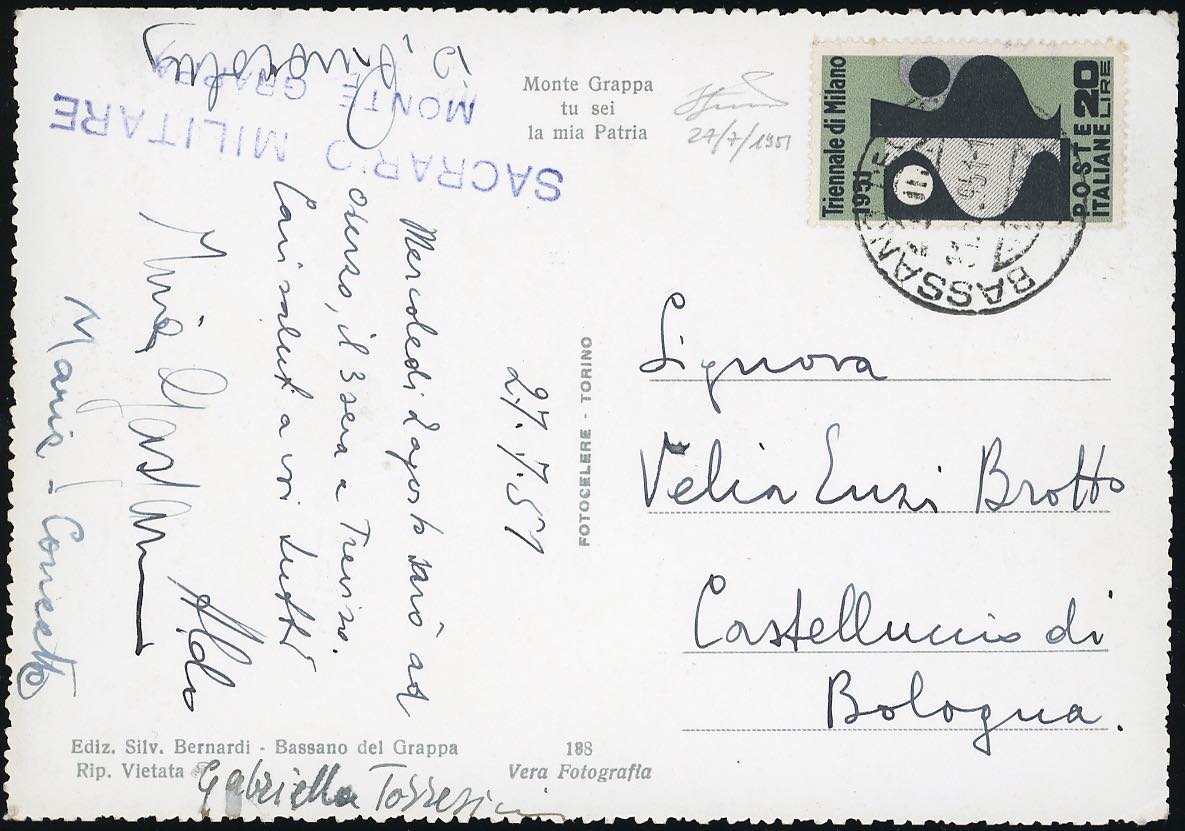 Monte Grappa
tu sei
la mia Patria
27/7/1951
Triennale di Milano
1951
POSTE
ITALIANE
LIRE 20
BASSAN
SACRARIO MILITARE
MONTE GRAPPA
27.7.51
Mercoledì 1 agosto sarò ad
, il 3 sera a Treviso.
Cari saluti a voi tutti
Aldo
Maria
FOTOCELERE - TORINO
Signora
Velia Enzi Brotto
Castelluccio di
Bologna.
Ediz. Silv. Bernardi - Bassano del Grappa
Rip. Vietata
188
Vera Fotografia
Gabriella